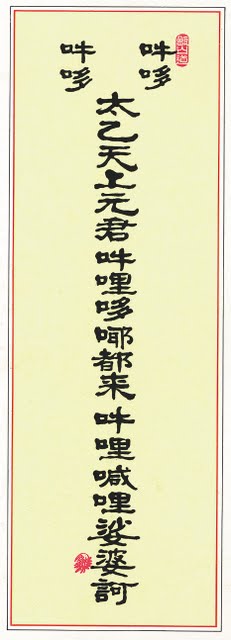 吽哆
太乙天上元君吽哩哆㖿都来吽哩喊哩娑婆訶
吽哆